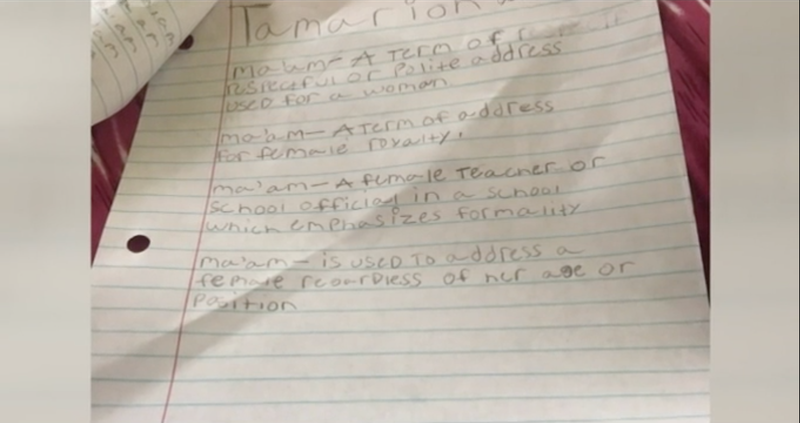 Tamarion
ma'am - A Term of
respectful or Polite address
used for a woman
ma'am - A Term of address
for female royalty.
ma'am - A female Teacher or
school official in a school
which emphasizes formality
ma'am - is used To address a
female regardless of her age or
Position
am
am
am
am